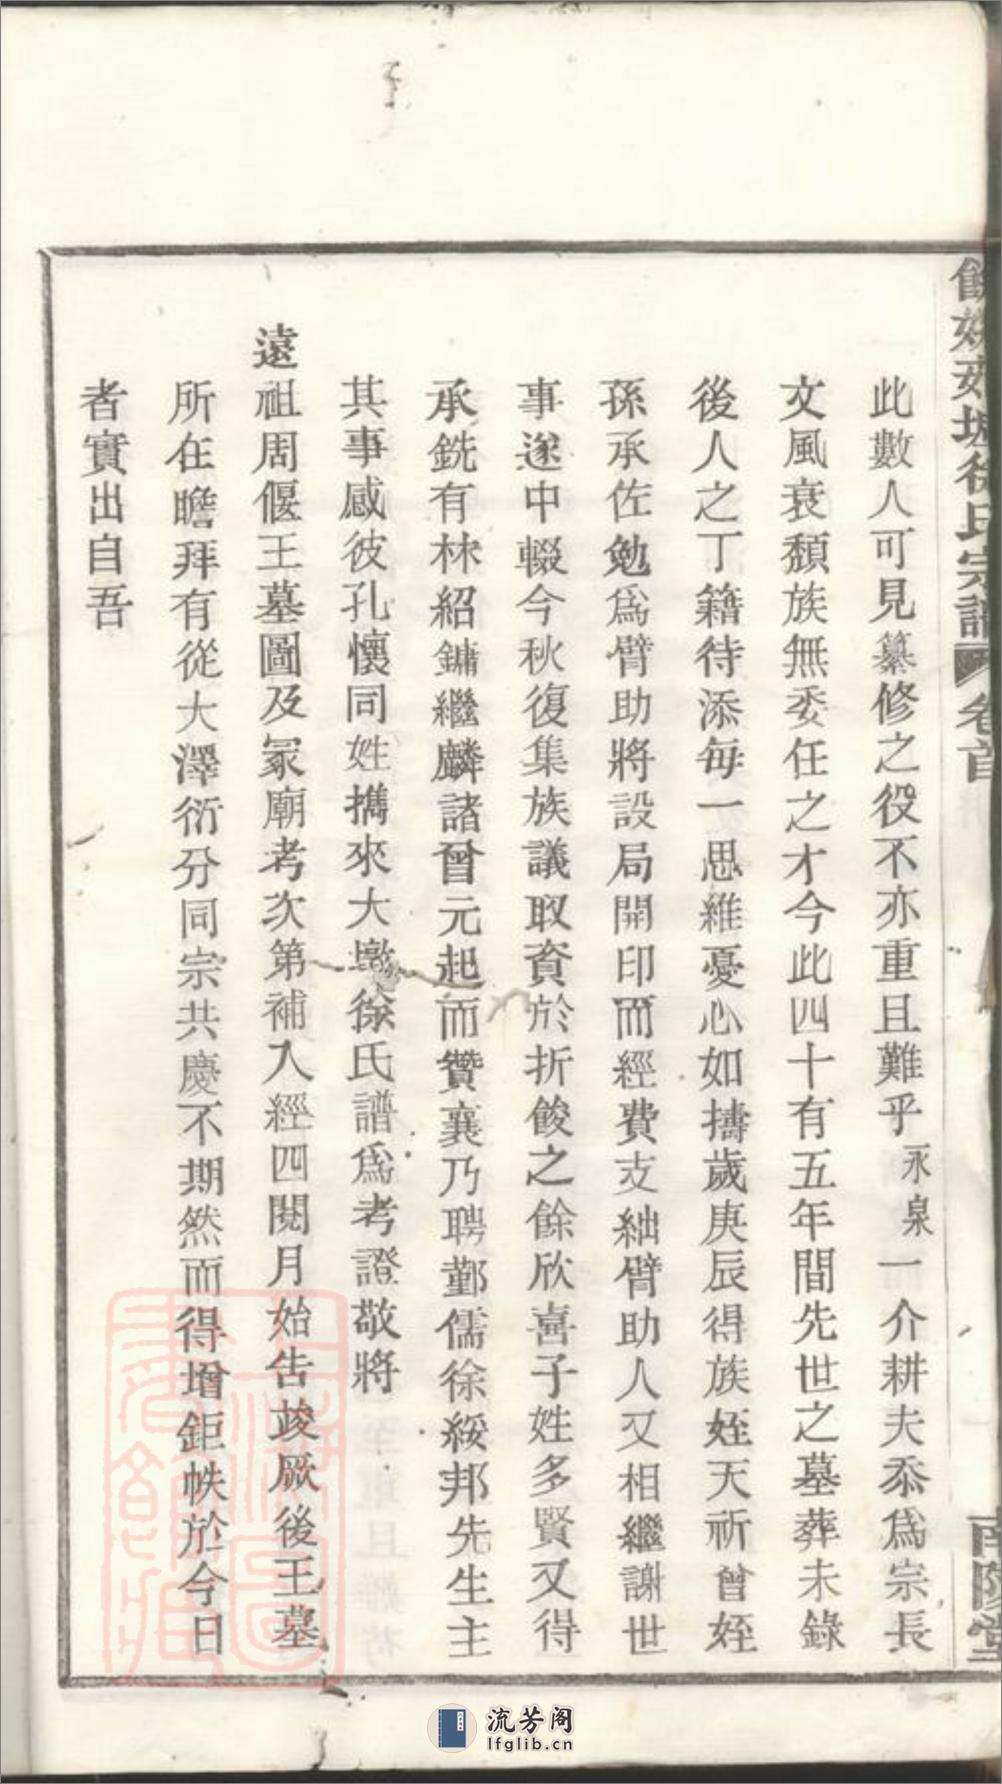 此數人可見纂修之役不亦重且難乎永泉一介耕夫忝爲宗長
文風衰頽族無委任之才今此四十有五年間先世之墓葬未錄
後人之丁籍待添每一思維憂心如擣歲庚辰得族姪天祈曾姪
孫承佐勉爲臂助將設局開印而經費支絀臂助人又相繼謝世
事遂中輟今秋復集族議取資於折餕之餘欣喜子姓多賢又得
承銑有林紹鏞繼麟諸曾元起而贊襄乃聘鄞儒徐綏邦先生主
其事感彼孔懷同姓攜來大墩徐氏譜爲考證敬將
遠祖周偃王墓圖及冢廟考次第補入經四閱月始告竣厥後王墓
所在瞻拜有從大澤衍分同宗共慶不期然而得增鉅帙於今日
者實出自吾
徐氏宗譜 卷首
南陵堂
流芳阁
lfglib.cn